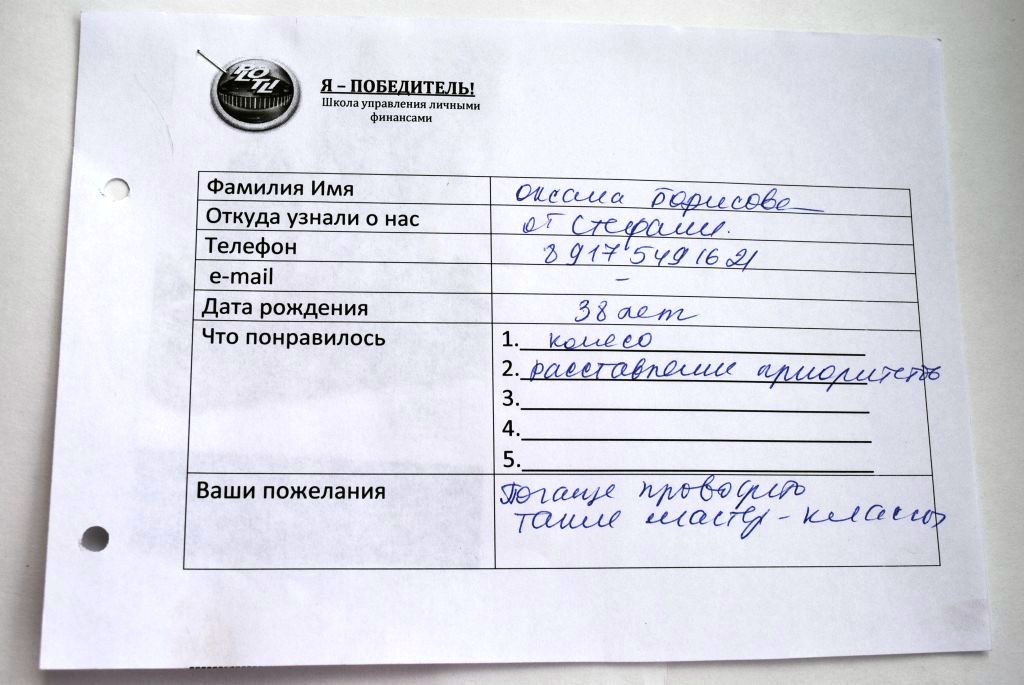 Я – ПОБЕДИТЕЛЬ!
Школа управления личными
финансами
Фамилия Имя
Оксана Борисова
Откуда узнали о нас
от Стефании.
Телефон
8 917 549 16 21
e-mail
–
Дата рождения
38 лет
Что понравилось
1. колесо
2. расставление приоритетов
3.
4.
5.
Ваши пожелания
Почаще проводить
такие мастер-классы